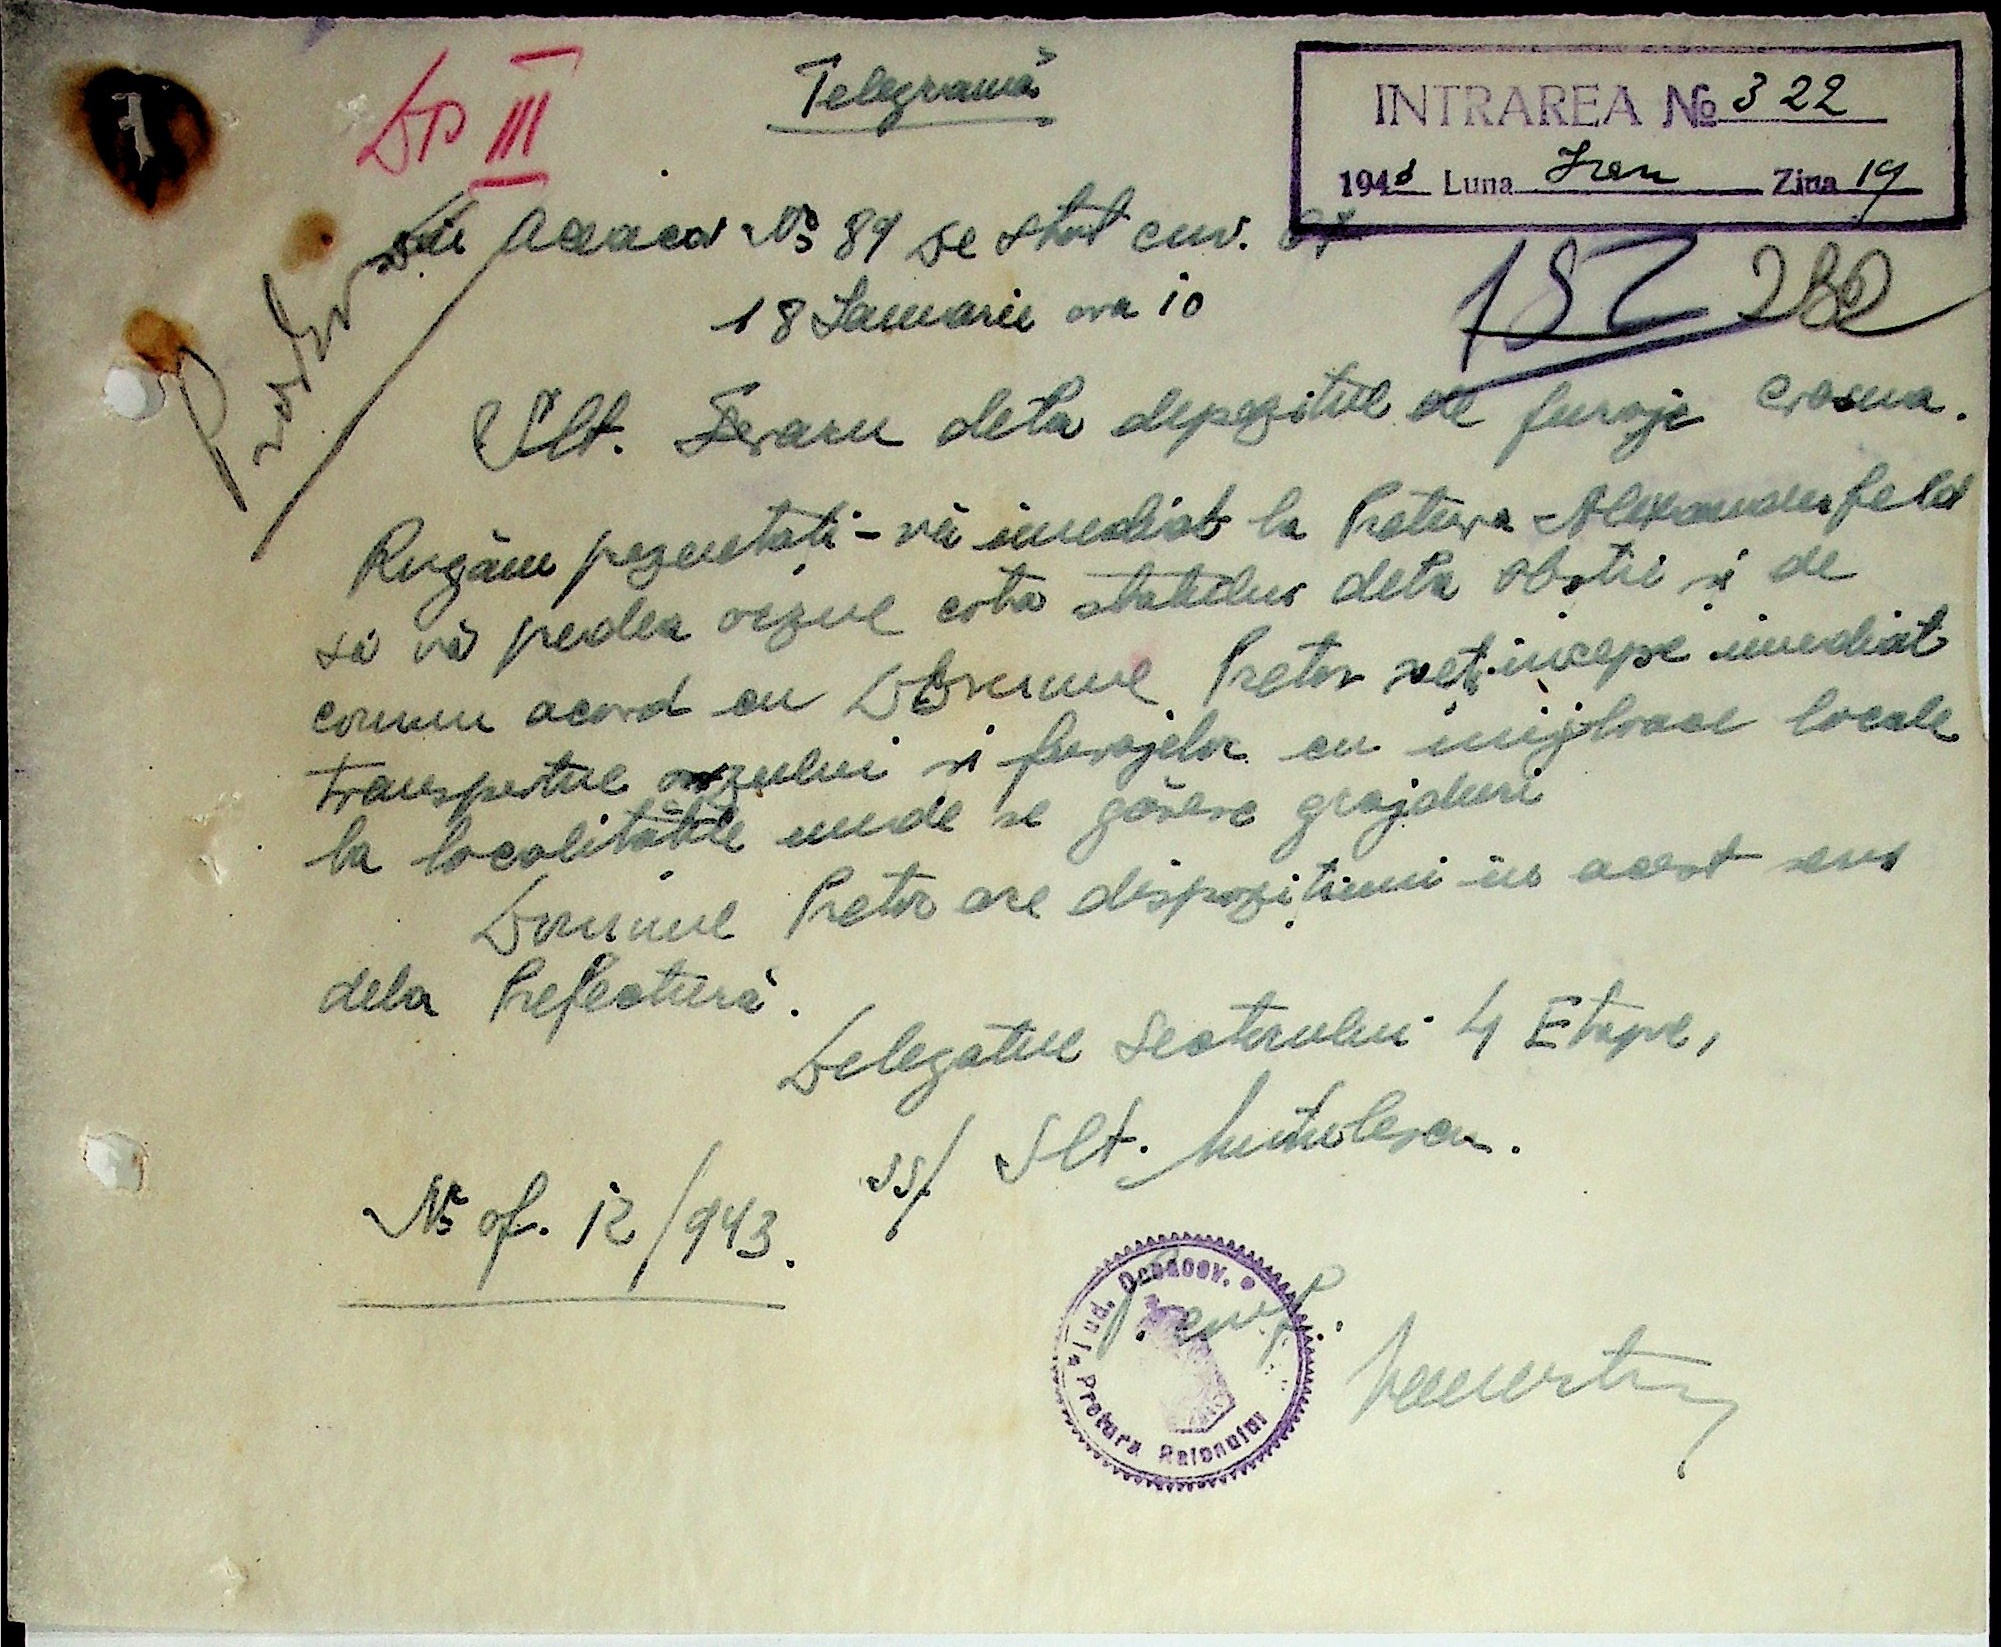 Telegramă
INTRAREA № 322
1943 Luna Ian Ziua 19
Dp III
Din Acacea No 89 de Stat cuv.
18 Ianuarie ora 10
182 282
Slt. Feraru dela depozitul de furaje Crasna.
Rugăm prezentați-vă imediat la Pretura Alexanderfeld
să vă predea orzul cota statului dela obștii și de
comun acord cu Domnul Pretor veți începe imediat
transportul orzului și furajelor cu mijloace locale
la localitățile unde se găsesc grajduri
Domnul Pretor are dispozițiuni în acest sens
dela Prefectură.
Delegatul Sectorului 4 Etape,
ss/ Slt. Mihulescu.
No of. 12/943.
Jud. Oceacov. Pretura Raionului